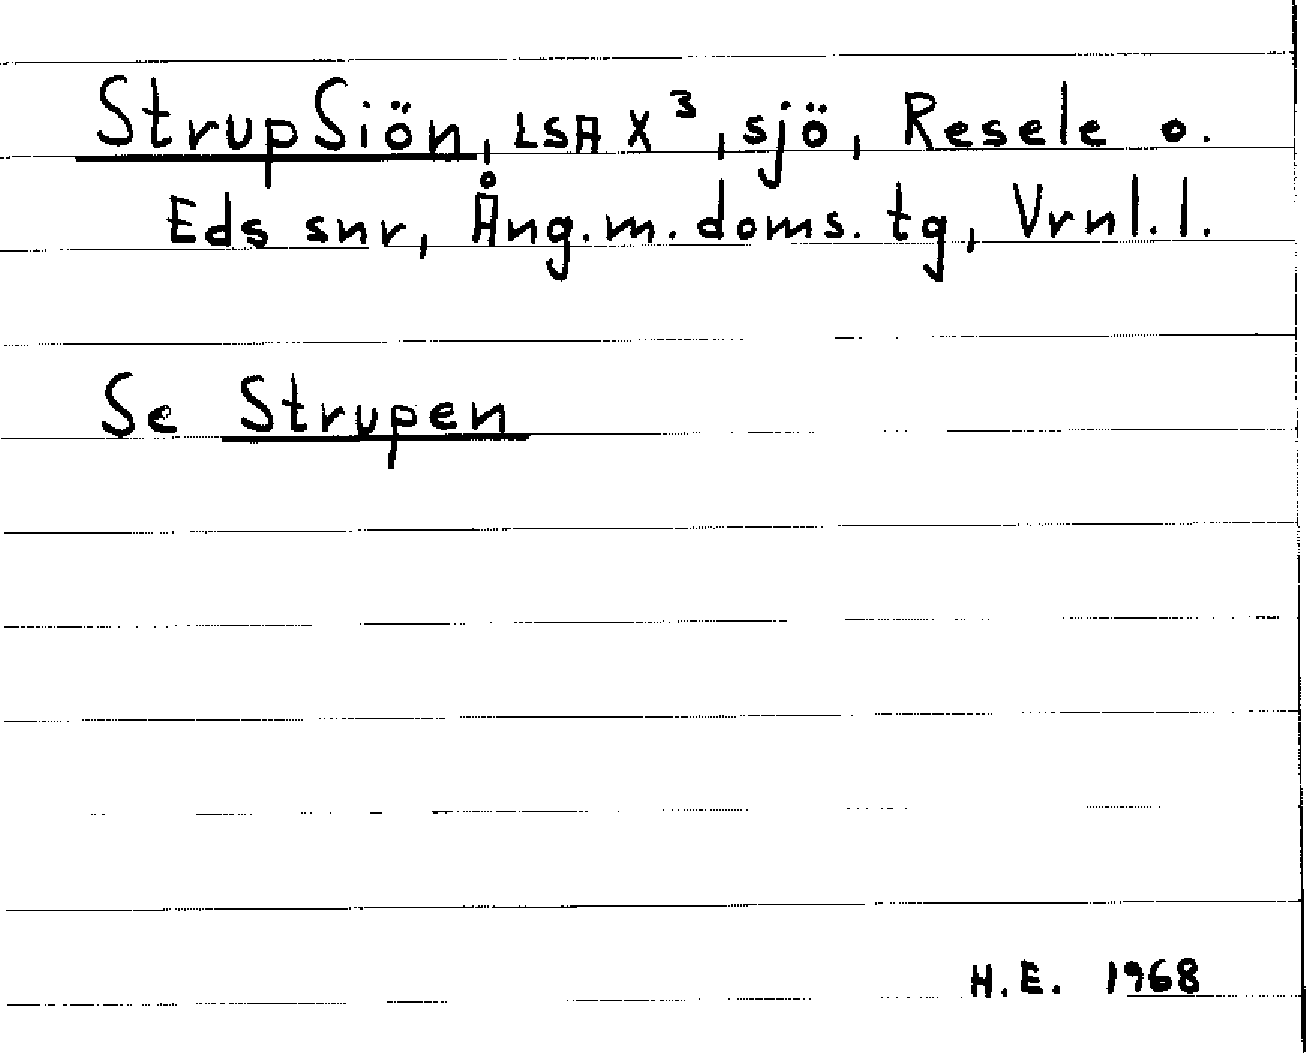 StrupSiön, LSA X³, sjö, Resele o.
Eds snr, Ång.m. doms. tg, Vrnl. l.
Se Strupen
H.E. 1968